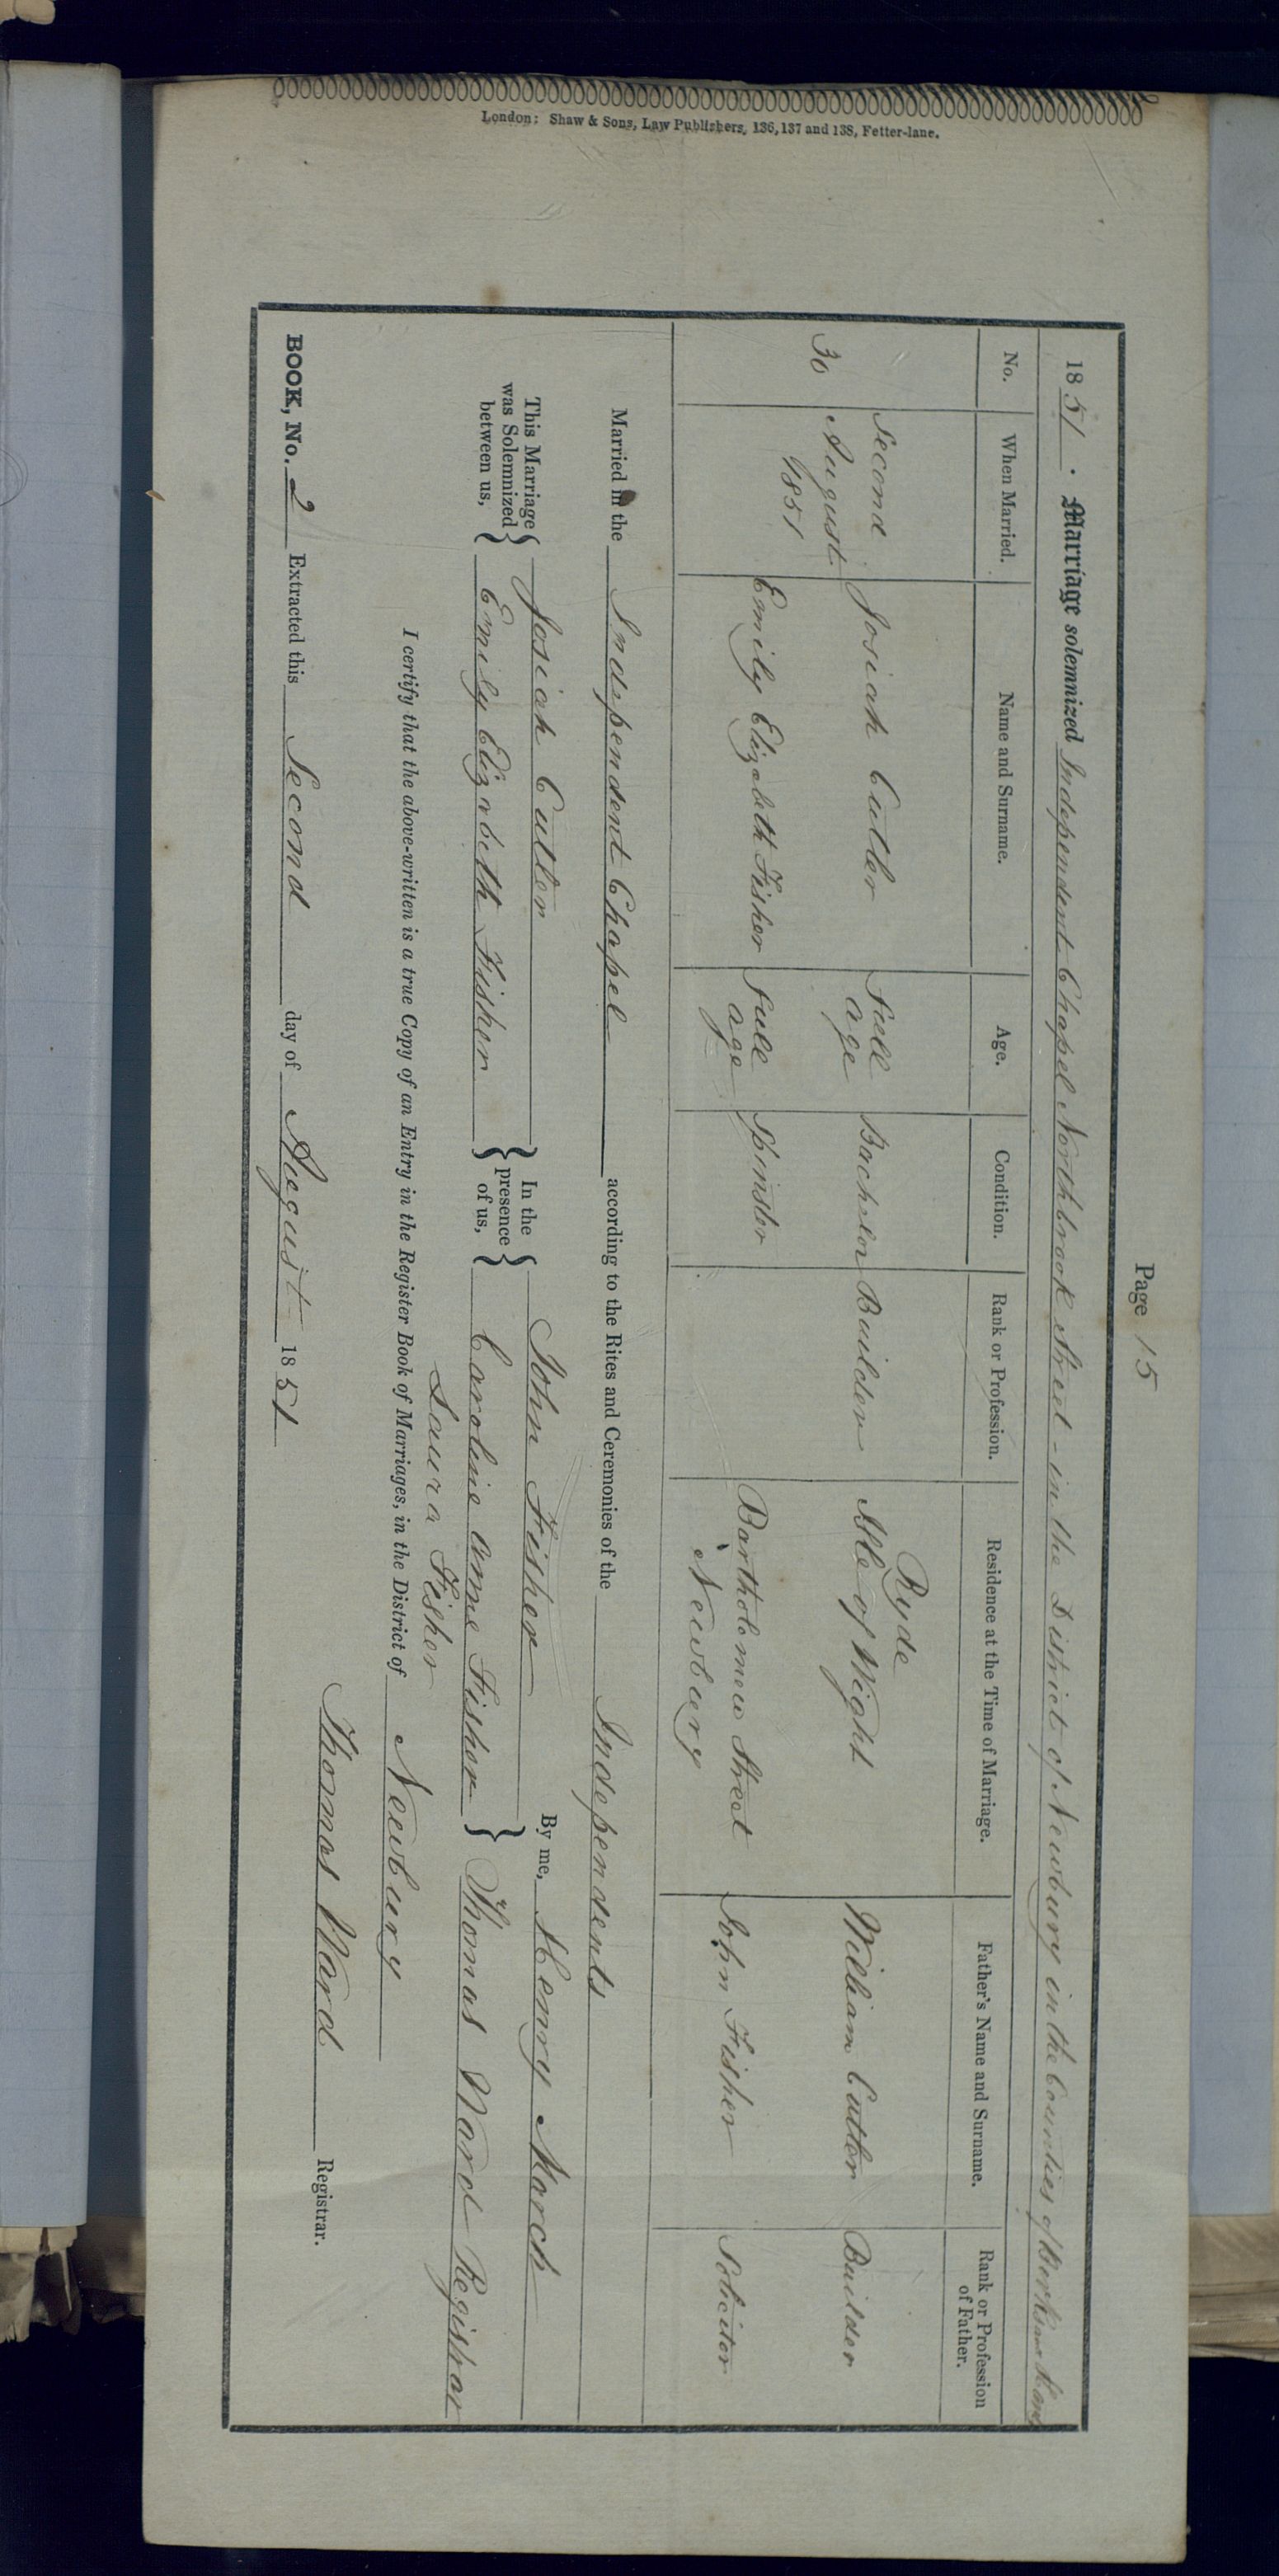 London: Shaw & Sons, Law Publishers, 136, 137 and 138, Fetter-lane.
Page 15
1851. Marriage solemnized Independent Chapel Northbrook Street - in the District of Newbury in the Counties of Berks and Hants
No. When Married. Name and Surname. Age. Condition. Rank or Profession. Residence at the Time of Marriage. Father's Name and Surname. Rank or Profession of Father.
30 Second August 1851 Josiah Cutler Full age Bachelor Builder Ryde Isle of Wight William Cutler Builder
Emily Elizabeth Fisher Full age Spinster Bartholomew Street Newbury John Fisher Solicitor
Married in the Independent Chapel according to the Rites and Ceremonies of the Independents
This Marriage was Solemnized between us, { Josiah Cutler
Emily Elizabeth Fisher
In the presence of us, { John Fisher
Caroline Anne Fisher
Laura Fisher
By me, Henry March
Thomas Ward Registrar
I certify that the above-written is a true Copy of an Entry in the Register Book of Marriages, in the District of Newbury
Thomas Ward Registrar.
BOOK, No. 2 Extracted this Second day of August 1851